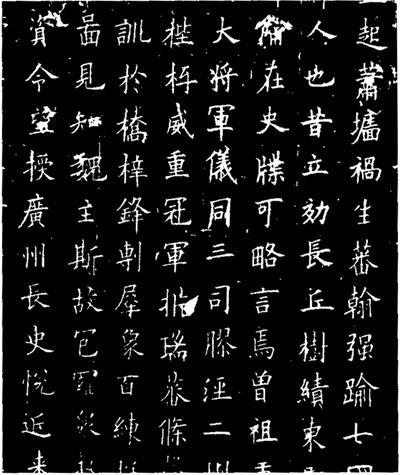 起蕭墻禍生蕃翰强踰七
人也昔立効長丘樹績東
在史牒可略言焉曾祖
大将軍儀同三司膠涇二州
桴威重冠軍瑤葼條
訓於橋梓鋒剸犀象百練
啚見知魏主斯故
資令望授廣州長史悅近来